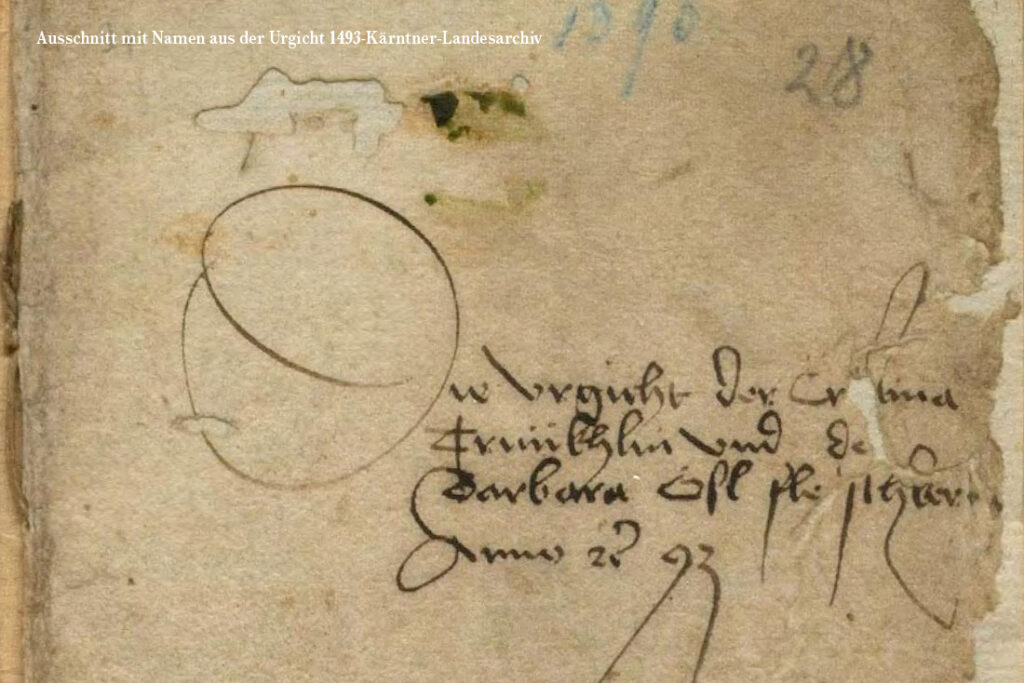 Ausschnitt mit Namen aus der Urgicht 1493-Kärntner-Landesarchiv
28
Die vrgicht der Cristina
Trunkhlin vnd de
Barbara
Anno 93